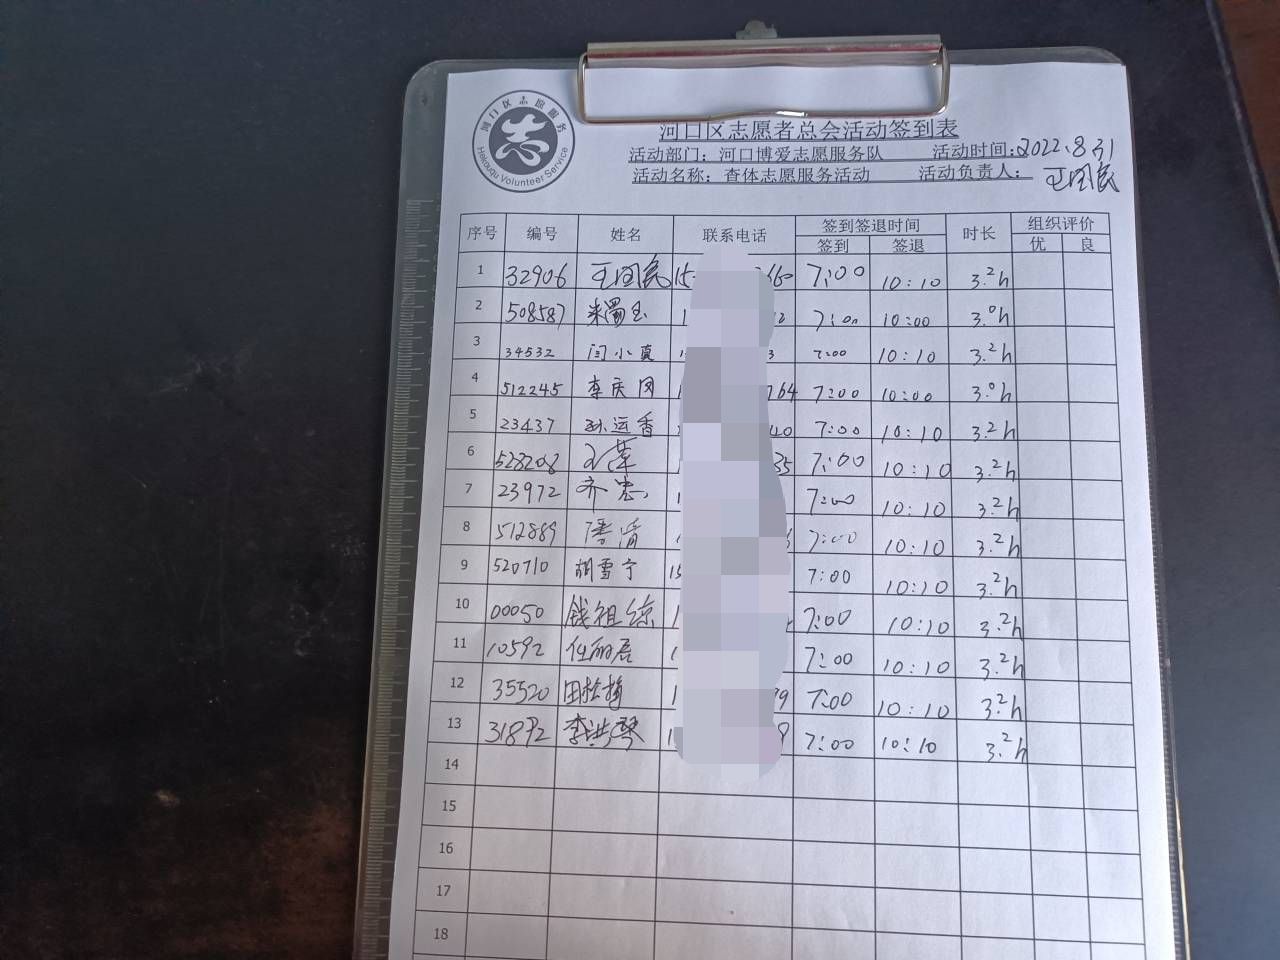 河口区志愿服务
Hekouqu Volunteer Service
河口区志愿者总会活动签到表
活动部门：河口博爱志愿服务队 活动时间：2022.8.31
活动名称：查体志愿服务活动 活动负责人：王国民
序号 编号 姓名 联系电话 签到签退时间 时长 组织评价
签到 签退 优 良
1 32906 王国民 15 7:00 10:10 3.2h
2 508587 7:00 10:00 3.0h
3 34532 闫小真 7:00 10:10 3.2h
4 512245 李庆国 764 7:00 10:00 3.0h
5 23437 孙运香 40 7:00 10:10 3.2h
6 528208 35 7:00 10:10 3.2h
7 23972 齐忠 7:00 10:10 3.2h
8 512889 潘清 7:00 10:10 3.2h
9 520710 胡雪宁 15 7:00 10:10 3.2h
10 00050 钱祖综 7:00 10:10 3.2h
11 10592 任丽君 7:00 10:10 3.2h
12 35520 田松梅 7:00 10:10 3.2h
13 31892 李洪琴 7:00 10:10 3.2h
14
15
16
17
18